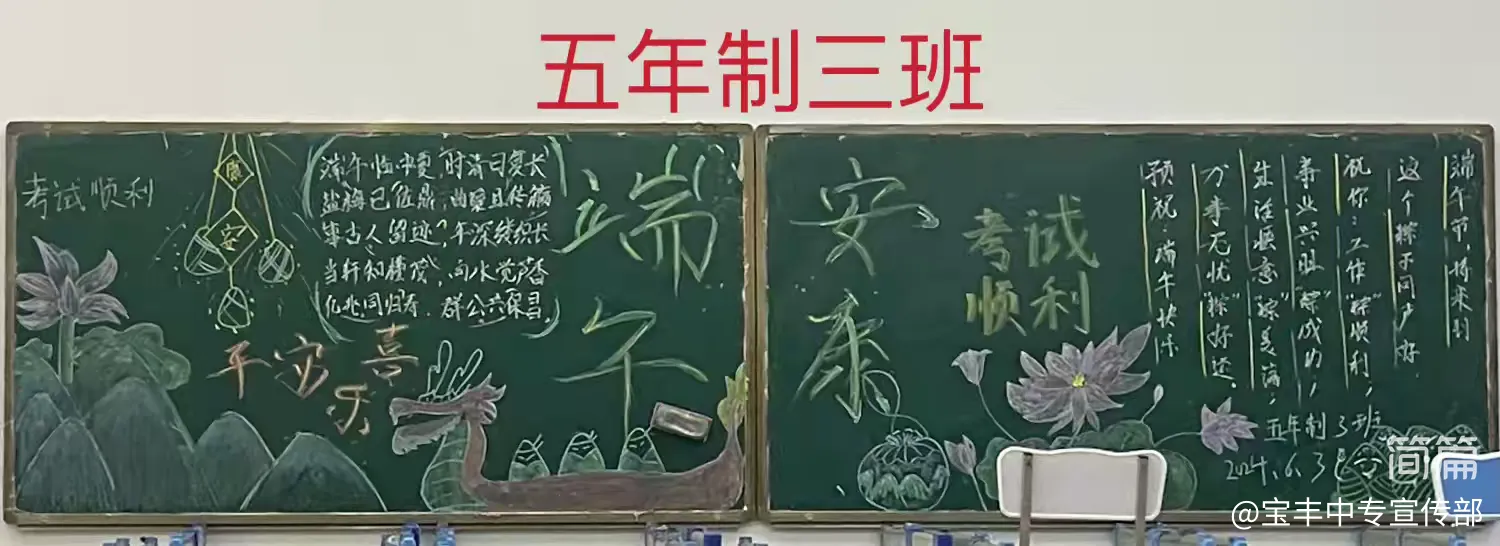 五年制三班
考试顺利
康
安
端午临中夏,时清日复长
盐梅已佐鼎,曲糵且传觞
事古人留迹,年深缕积长
当轩知槿茂,向水觉芦香
亿兆同归寿,群公共保昌。
平安喜乐
端午
安康
考试
顺利
端午节,将来到
这个粽子问声好
祝你:工作"粽"顺利,
事业兴旺"粽"成功,
生活惬意"粽"美满,
万事无忧"粽"好运。
预祝:端午快乐
五年制3班
2024.6.3
简篇
@宝丰中专宣传部